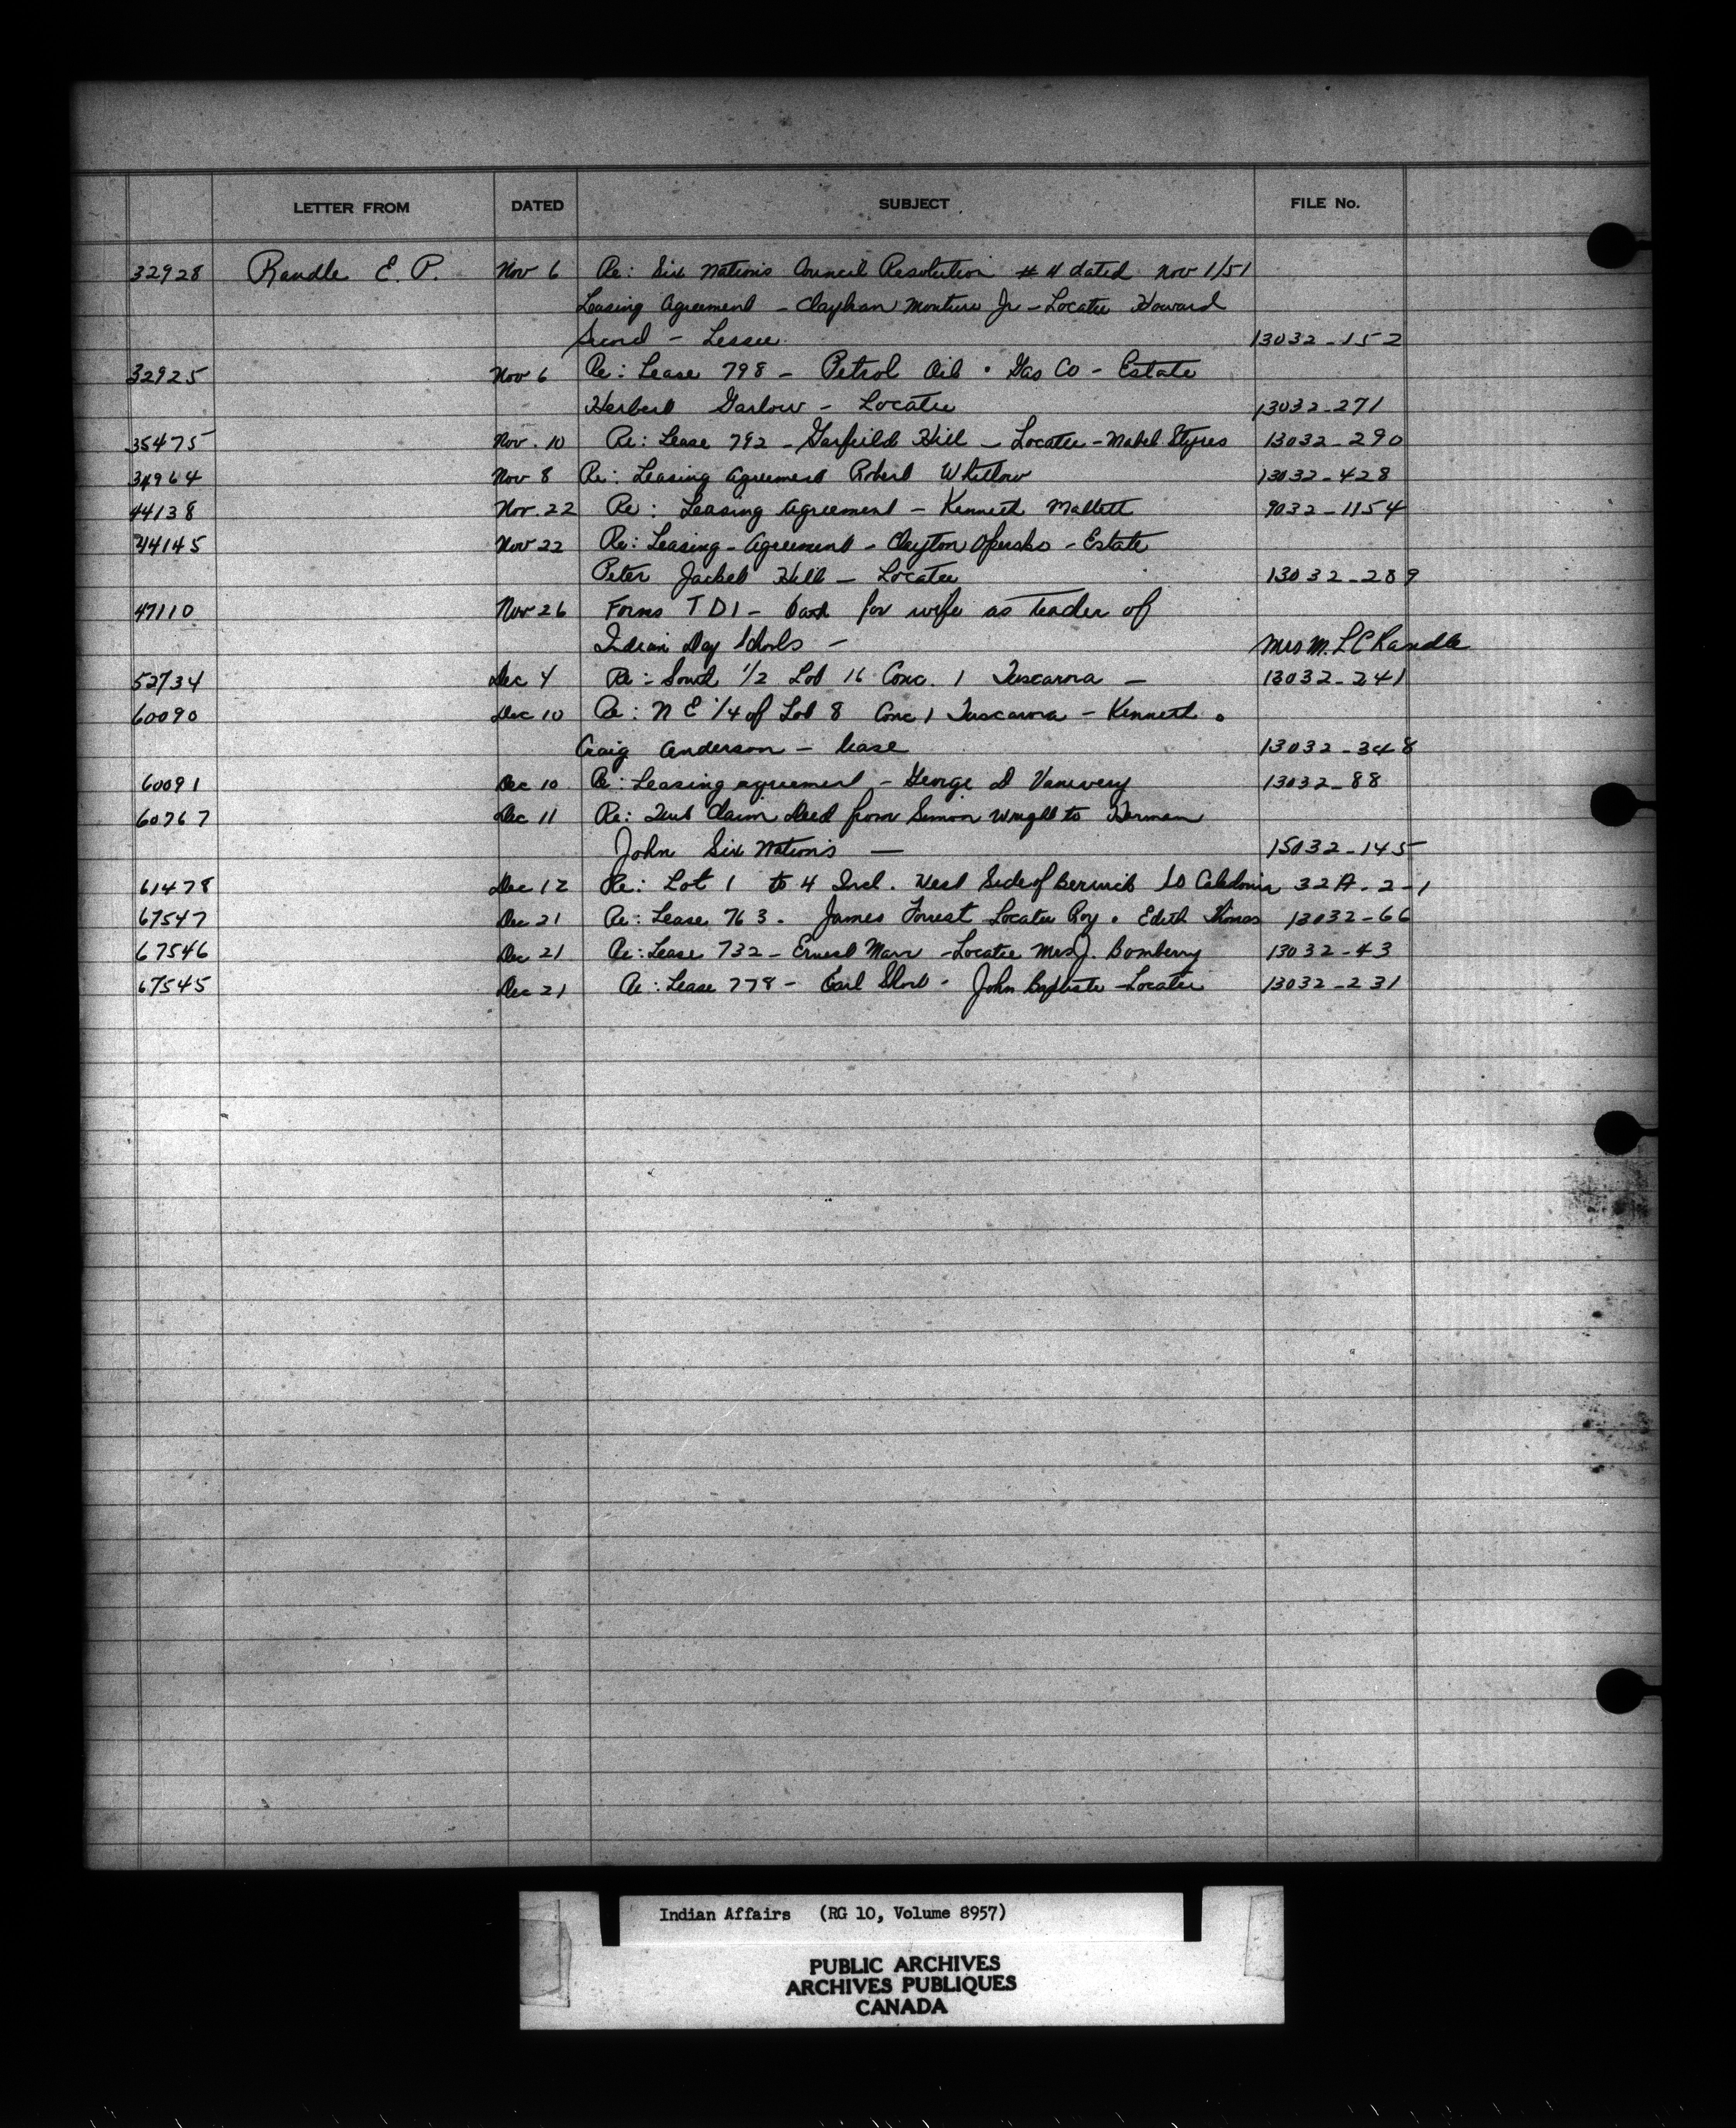 LETTER FROM DATED SUBJECT FILE No.
32928 Randle E. P. Nov 6 Re: Six Nations Council Resolution # 4 dated Nov 1/51
Leasing Agreement - Monture Jr - Locatee Howard
Secord - Lessee 13032-152
32925 Nov 6 Re: Lease 798 - Petrol Oil & Gas Co - Estate
Herbert Garlow - Locatee 13032-271
35475 Nov. 10 Re: Lease 792 - Garfeild Hill - Locatee - Mabel Styres 13032-290
34964 Nov 8 Re: Leasing Agreement Robert Whitlow 13032-428
44138 Nov. 22 Re: Leasing Agreement - Kenneth Mallett 9032-1154
44145 Nov 22 Re: Leasing - Agreement - Clayton - Estate
Peter Jacket Hill - Locatee 13032-289
47110 Nov 26 Forms T D 1 - for wife as teacher of
Indian Day Schools - Mrs M. L C Randle
52734 Dec 4 Re: South 1/2 Lot 16 Conc. 1 Tuscarora - 13032-241
60090 Dec 10 Re: N E 1/4 of Lot 8 Conc 1 Tuscarora - Kenneth &
Craig Anderson - lease 13032-348
60091 Dec 10 Re: Leasing agreement - George D Vanevery 13032-88
60767 Dec 11 Re: Quit Claim Deed from Simon Wright to Herman
John Six Nations - 15032-145
61478 Dec 12 Re: Lot 1 to 4 Incl. West Side of Berwick St Caledonia 32A-2-1
67547 Dec 21 Re: Lease 763. James Forrest Locatee Roy & Edith Thomas 13032-66
67546 Dec 21 Re: Lease 732 - Ernest Marr - Locatee Mrs J. Bomberry 13032-43
67545 Dec 21 Re: Lease 778 - Earl Short - John Baptiste - Locatee 13032-231
Indian Affairs (RG 10, Volume 8957)
PUBLIC ARCHIVES
ARCHIVES PUBLIQUES
CANADA